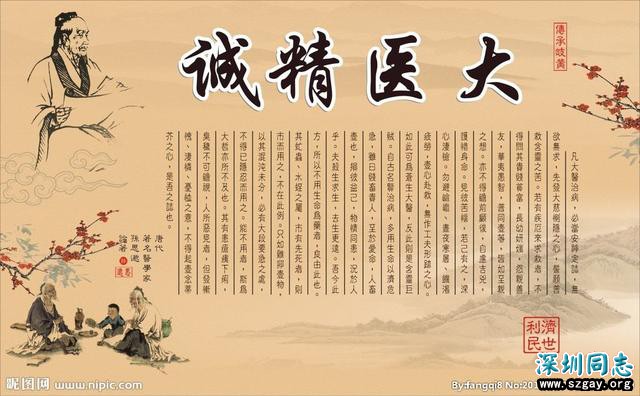 傳承岐黃
大医精诚
凡大醫治病，必當安神定誌，無
欲無求，先發大慈惻隱之心，誓願普
救含靈之苦。若有疾厄來求救者，不
得問其貴賤貧富，長幼妍媸，怨親善
友，華夷愚智，普同壹等，皆如至親
之想。亦不得瞻前顧後，自慮吉兇，
護惜身命。見彼苦惱，若己有之，深
心淒愴。勿避嶮巇、晝夜寒暑、饑渴
疲勞，壹心赴救，無作工夫形跡之心。
如此可為蒼生大醫，反此則是含靈巨
賊。自古名賢治病，多用生命以濟危
急，雖曰賤畜貴人，至於愛命，人畜
壹也，損彼益己，物情同患，況於人
乎。夫殺生求生，去生更遠。吾今此
方，所以不用生命為藥者，良由此也。
其虻蟲、水蛭之屬，市有先死者，則
市而用之，不在此例。只如雞卵壹物，
以其混沌未分，必有大段要急之處，
不得已隱忍而用之。能不用者，斯為
大哲亦所不及也。其有患瘡痍下痢，
臭穢不可瞻視，人所惡見者，但發慚
愧、淒憐、憂恤之意，不得起壹念蒂
芥之心，是吾之誌也。
唐代
著名醫學家
孫思邈
論著
濟世
利民
昵图网 www.nipic.com
By:fangqi8 No:201
深圳同志
www.szgay.org